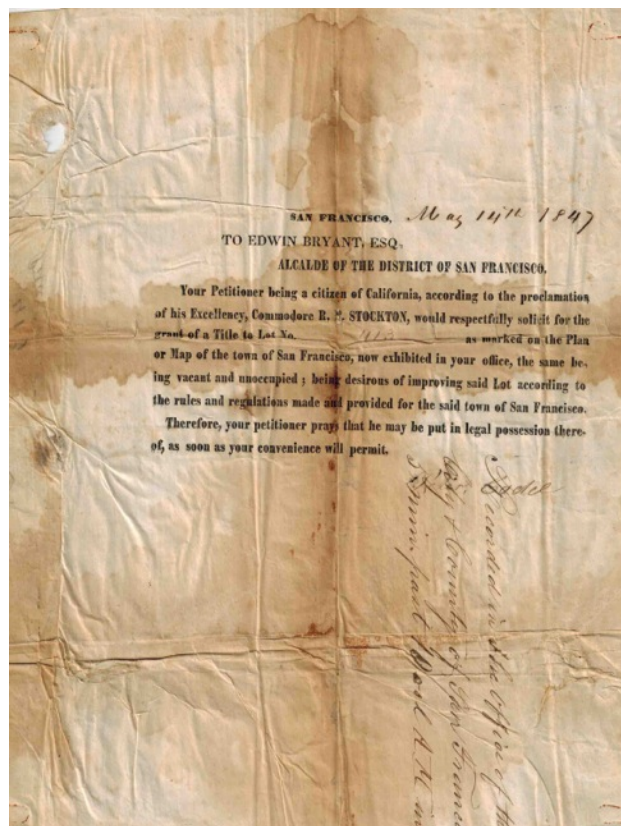 SAN FRANCISCO, May 14th 1847
TO EDWIN BRYANT, ESQ,
ALCALDE OF THE DISTRICT OF SAN FRANCISCO.
Your Petitioner being a citizen of California, according to the proclamation
of his Excellency, Commodore R. F. STOCKTON, would respectfully solicit for the
grant of a Title to Lot No. as marked on the Plan
or Map of the town of San Francisco, now exhibited in your office, the same be-
ing vacant and unoccupied ; being desirous of improving said Lot according to
the rules and regulations made and provided for the said town of San Francisco.
Therefore, your petitioner prays that he may be put in legal possession there-
of, as soon as your convenience will permit.
Recorded in the Office of the
City & County of San Franci
min. past A. M. in